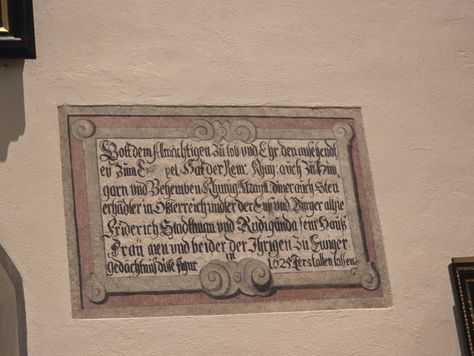 Gott dem Allmächtigen zu lob und Ehr den
en zum pel Hat der Röm: Khay: auch Zu Hun
garn und Behemben Khunig: May: diner auch Sten
erhandler in Österreich under der Enß und Burger alhie
Friderich Stadlman und Rudigunda sein Hauß
Frau auen und beider der Ihrigen Zu Ewiger
gedachtnuß dise figur in 1625 Jer stallen lassen